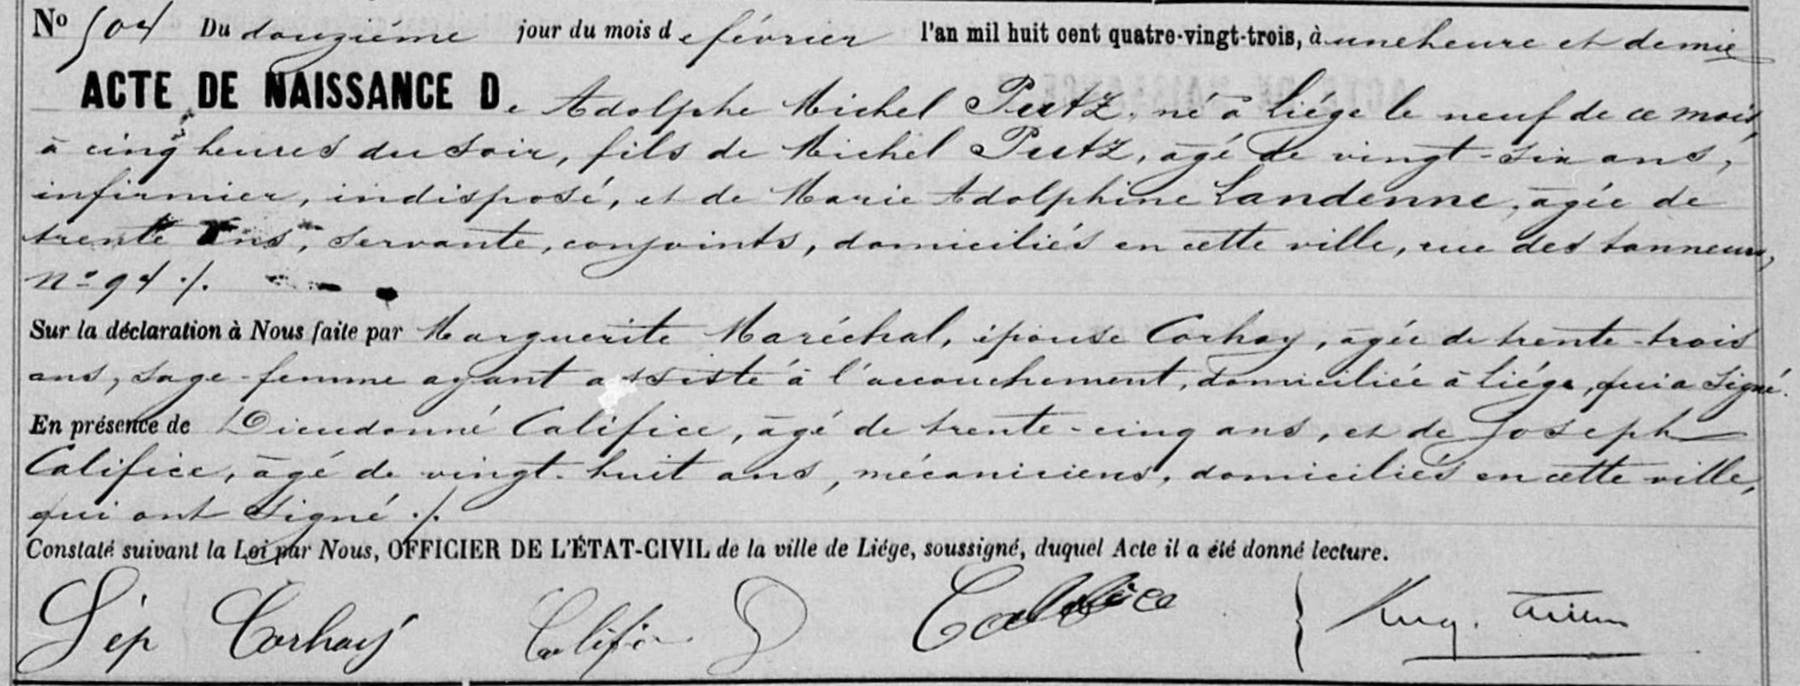 No 504 Du douzième jour du mois de février l'an mil huit cent quatre-vingt-trois, à une heure et demie
ACTE DE NAISSANCE De Adolphe Michel Putz, né à Liége le neuf de ce mois,
à cinq heures du soir, fils de Michel Putz, âgé de vingt-six ans,
infirmier, indisposé, et de Marie Adolphine Landenne, âgée de
trente ans, servante, conjoints, domiciliés en cette ville, rue des tanneurs,
no 94 ./.
Sur la déclaration à Nous faite par Marguerite Maréchal, épouse Corhay, âgée de trente-trois
ans, sage-femme ayant assisté à l'accouchement, domiciliée à Liége, qui a signé.
En présence de Dieudonné Califice, âgé de trente-cinq ans, et de Joseph
Califice, âgé de vingt-huit ans, mécaniciens, domiciliés en cette ville,
qui ont signé ./.
Constaté suivant la Loi par Nous, OFFICIER DE L'ÉTAT-CIVIL de la ville de Liége, soussigné, duquel Acte il a été donné lecture.
Sép Corhay Califice D Califice